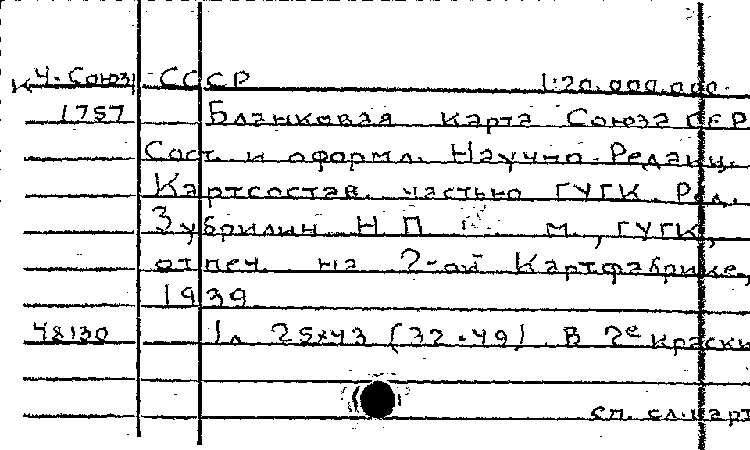 К 4-Союз СССР 1:20.000.000.
1757 Бланковая карта Союза ССР
Сост. и оформл. Научно-Редакц.
Картсостав. частью ГУГК. Ред.
Зубрилин Н П М., ГУГК,
отпеч. на 2-ой Картфабрике,
1939
48130 1 л 25х43 (32×49) В 2е краски
см. сл. карт